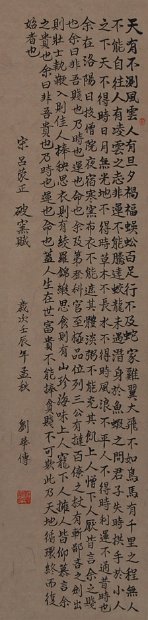 天有不測風雲人有旦夕禍福蜈蚣百足行不及蛇家雞翼大飛不如鳥馬有千里之程無人
不能自往人有凌雲之志非運不能騰達蛟龍未遇潛身於魚蝦之間君子失時拱手於小人
之下天不得時日月無光地不得時草木不長水不得時風浪不平人不得時利運不通昔時也
余在洛陽日投僧院夜宿寒窑布衣不能遮其體淡粥不能充其飢上人憎下人厭皆言余之賤
也余曰非吾賤也乃時也運也命也余及第登科官至極品位列三公有撻百僚之杖有斬鄙吝之劍出
則壯士執鞭入則佳人捧秧思衣則有綾羅錦緞思食則有山珍海味上人寵下人擁人皆仰慕言余
之貴也余曰非吾貴也乃時也運也命也蓋人生在世富貴不能捧貧賤不可欺此乃天地循環終而復
始者也
宋呂蒙正 破窑賦
歲次壬辰年孟秋 劉華傳